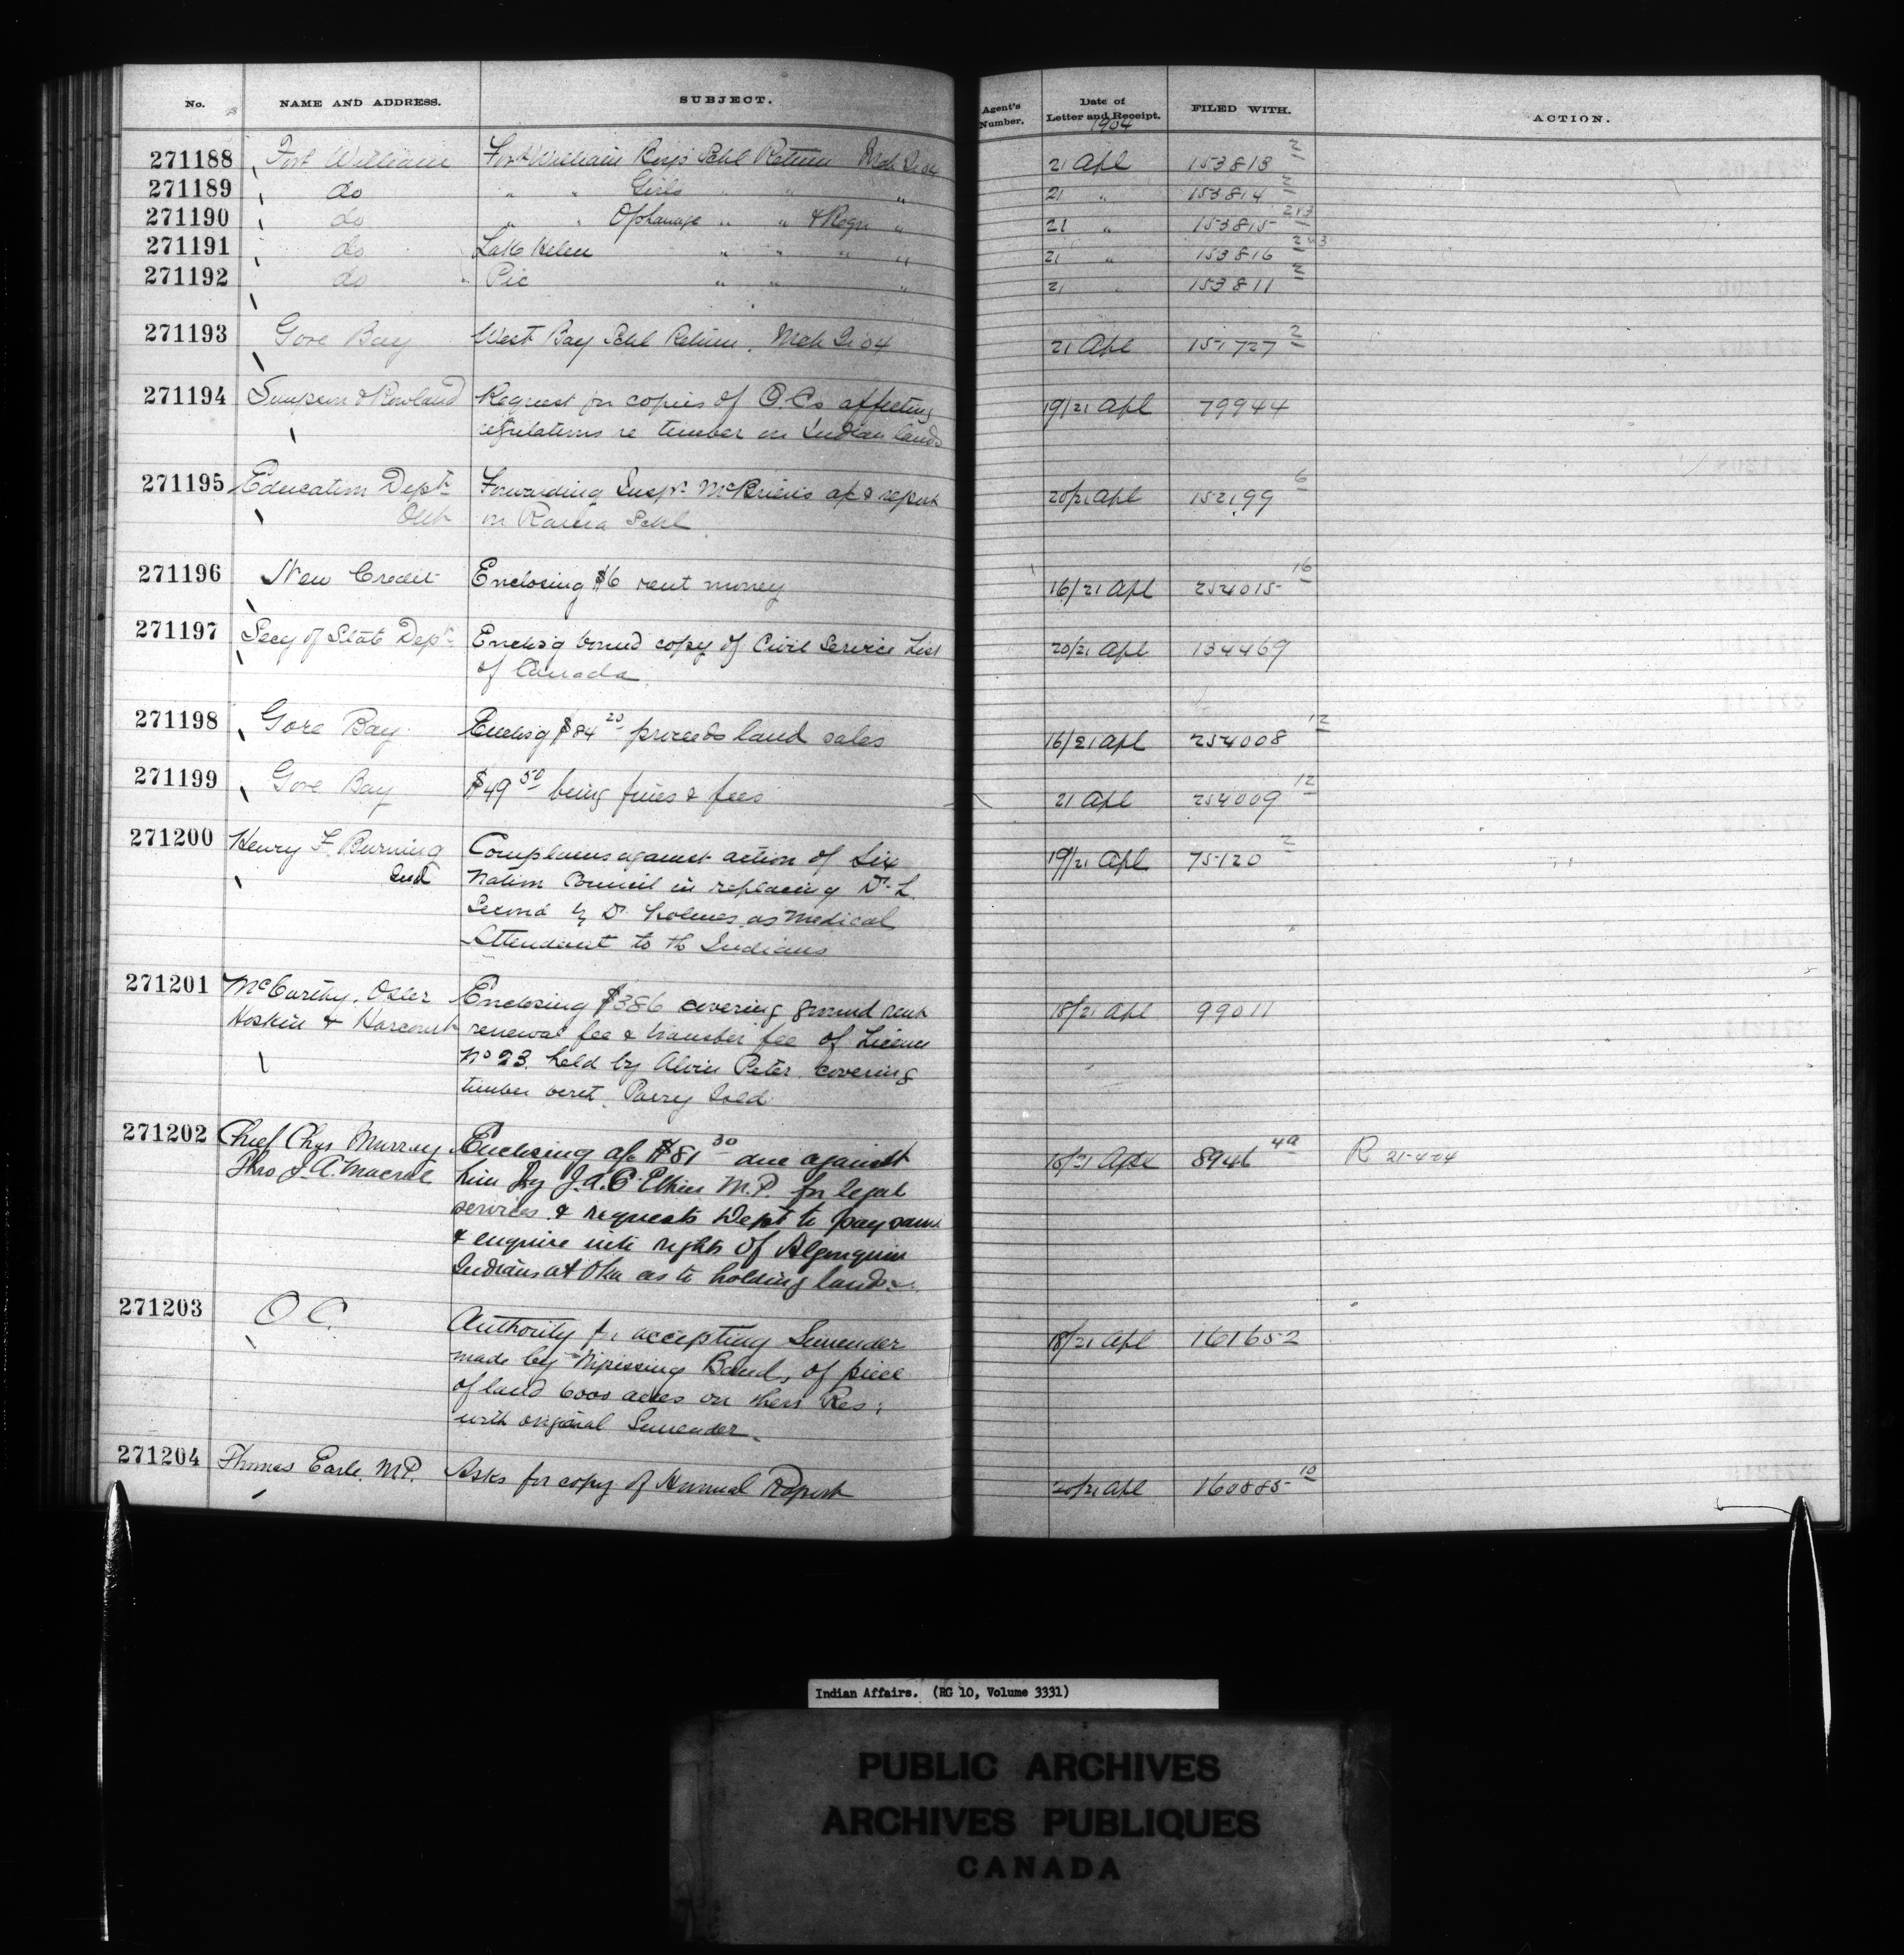 No. NAME AND ADDRESS. SUBJECT. Agent's Number. Date of Letter and Receipt. FILED WITH. ACTION.
1904
271188 Fort William Fort William Boys Schl Return Mch Qr 04 21 Apl 153813 2
271189 do " " Girls " " " 21 " 153814 2
271190 do " " Orphanage " " & Reqn " 21 " 153815 2&3
271191 do Lake Helen " " " " 21 " 153816 2&3
271192 do Pic " " " 21 " 153811 2
271193 Gore Bay West Bay Schl Return, Mch Qr 04 21 Apl 151727 2
271194 Simpson & Rowland Request for copies of O.Cs affecting 19/21 Apl 79944
regulations re timber on Indian lands
271195 Education Dept Forwarding Inspr McBrien's a/c & report 20/21 Apl 152199 6
Ont on Rama Schl
271196 New Credit Enclosing $6 rent money 16/21 Apl 254015 16
271197 Secy of State Dept Enclosg bound copy of Civil Service List 20/21 Apl 134469
of Canada
271198 Gore Bay Enclosg $84 20 proceeds land sales 16/21 Apl 254008 12
271199 Gore Bay $49 50 being fines & fees 21 Apl 254009 12
271200 Henry F. Burning Complains against action of Six 19/21 Apl 75120 2
Ind Nation Council in replacing Dr L.
Secord by Dr Holmes as Medical
Attendant to th Indians
271201 McCarthy, Osler Enclosing $386 covering ground rent 18/21 Apl 99011
Hoskin & Harcourt renewal fee & transfer fee of License
No 23. held by Alvin Peter covering
timber berth. Parry Isld
271202 Chief Chas Murray Enclosing a/c $81 30 due against 18/21 Apl 8946 4a R 21-4-04
Thro J. A. Macrae him by J.A.C. Ethier M.P. for legal
services & requests Dept to pay same
& enquire into rights of Algonquin
Indians at Oka as to holding lands
271203 O C. Authority for accepting Surrender 18/21 Apl 161652
made by Nipissing Band, of piece
of land 6000 acres on their Res:
with original Surrender.
271204 Thomas Earle. M.P. Asks for copy of Annual Report 20/21 Apl 160885 10
Indian Affairs. (RG 10, Volume 3331)
PUBLIC ARCHIVES
ARCHIVES PUBLIQUES
CANADA